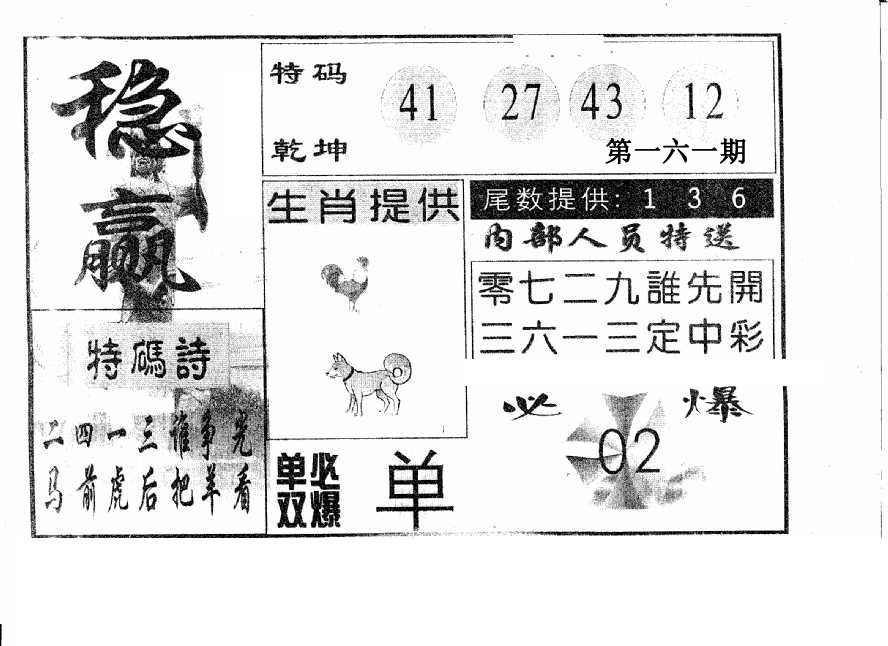 稳
赢
特码
乾坤
41 27 43 12
第一六一期
生肖提供
尾数提供: 1 3 6
内部人员特送
零七二九誰先開
三六一三定中彩
特碼詩
二四一三谁争光
马前虎后把羊看
单双
必爆
单
必 爆
02